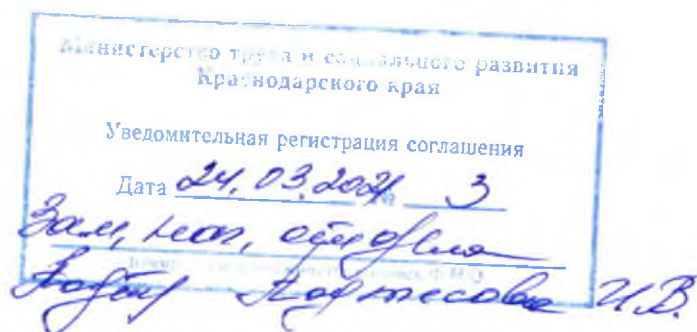 Министерство труда и социального развития
Краснодарского края
Уведомительная регистрация соглашения
Дата 24.03.2021 № 3
Зам. нач. отдела
И.В.